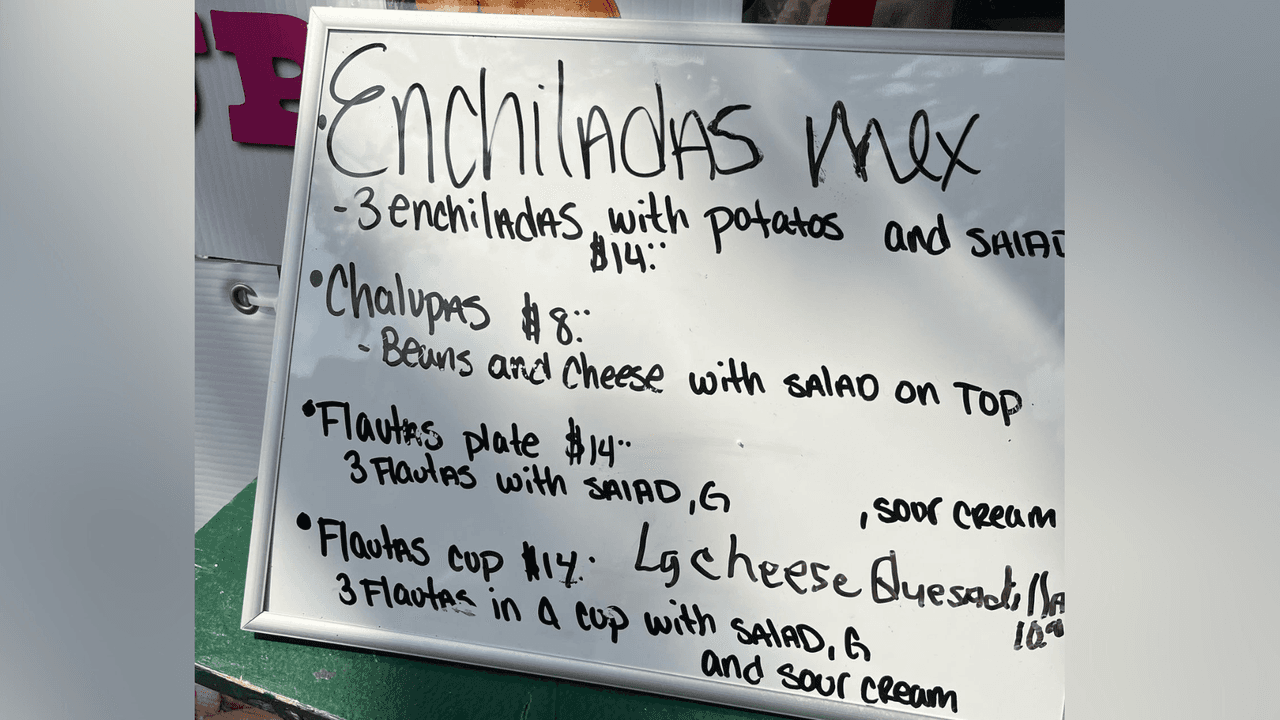 B
Enchiladas Mex
- 3 enchiladas with potatos and SALAD
$14..
• Chalupas $8..
- Beans and cheese with SALAD on TOP
• Flautas plate $14..
3 Flautas with SALAD, G , sour cream
• Flautas cup $14.. Lg cheese Quesadilla
3 Flautas in a cup with SALAD, G 10.00
and sour cream